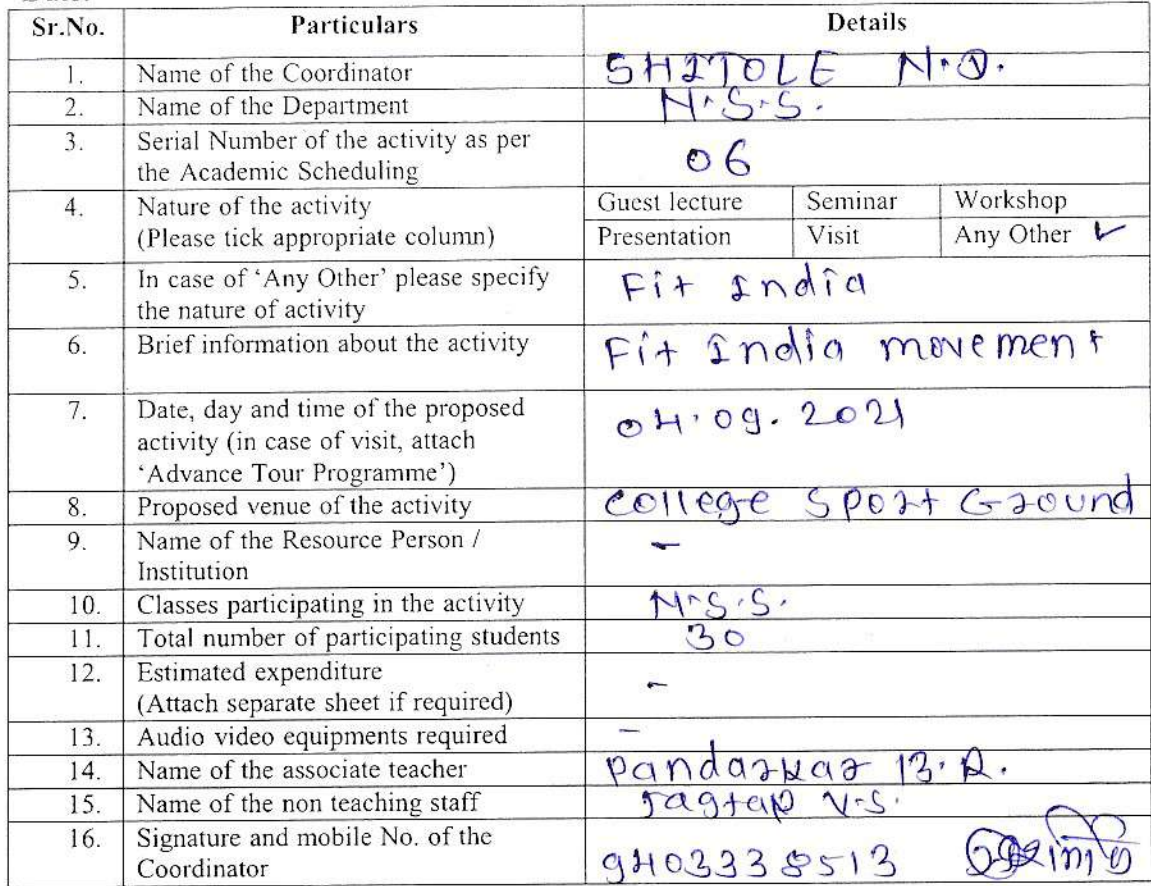 Sr.No. Particulars Details
1. Name of the Coordinator SHITOLE N.D.
2. Name of the Department N.S.S.
3. Serial Number of the activity as per
the Academic Scheduling 06
4. Nature of the activity Guest lecture Seminar Workshop
(Please tick appropriate column) Presentation Visit Any Other ✓
5. In case of ‘Any Other’ please specify Fit India
the nature of activity
6. Brief information about the activity Fit India movement
7. Date, day and time of the proposed 04.09.2021
activity (in case of visit, attach
‘Advance Tour Programme’)
8. Proposed venue of the activity College Sport Ground
9. Name of the Resource Person / -
Institution
10. Classes participating in the activity N.S.S.
11. Total number of participating students 30
12. Estimated expenditure -
(Attach separate sheet if required)
13. Audio video equipments required -
14. Name of the associate teacher Pandarkar B.R.
15. Name of the non teaching staff Jagtap V.S.
16. Signature and mobile No. of the
Coordinator 9403338513